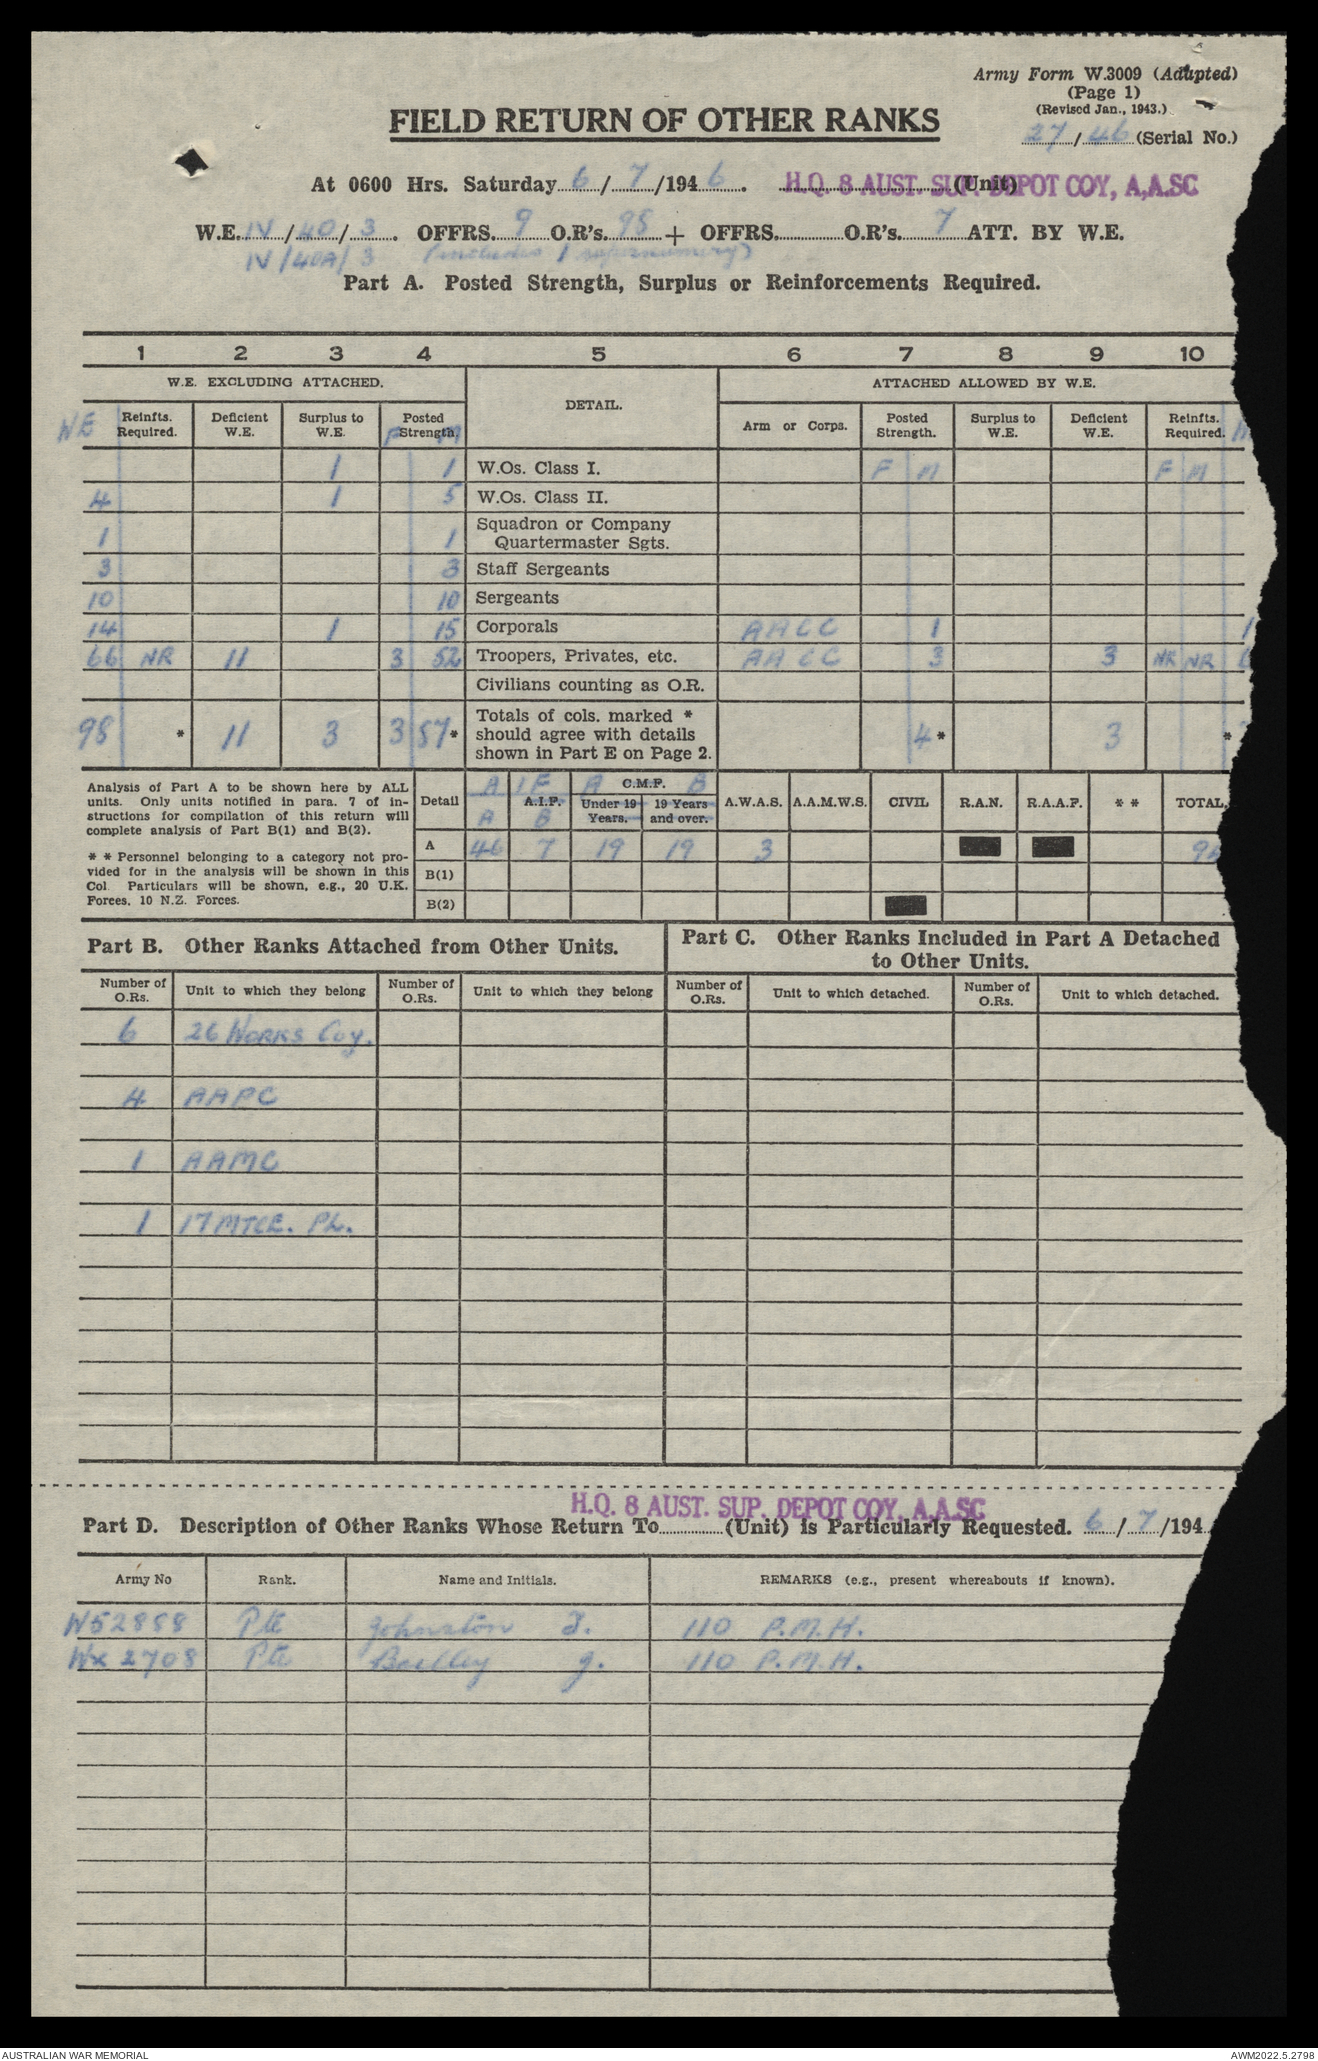 Army Form W.3009 (Adapted)
(Page 1)
(Revised Jan., 1943.)
FIELD RETURN OF OTHER RANKS
27/46 (Serial No.)
At 0600 Hrs. Saturday 6/7/1946. H.Q. 8 AUST. SUP. DEPOT COY, A.A.SC (Unit)
W.E. IV/40/3. OFFRS. 9 O.R's. 98 + OFFRS. O.R's. 7 ATT. BY W.E.
IV/40A/3 (includes 1 supernumery)
Part A. Posted Strength, Surplus or Reinforcements Required.
1 2 3 4 5 6 7 8 9 10
W.E. EXCLUDING ATTACHED. DETAIL. ATTACHED ALLOWED BY W.E.
WE Reinfts. Required. Deficient W.E. Surplus to W.E. F Posted Strength. M Arm or Corps. Posted Strength. Surplus to W.E. Deficient W.E. Reinfts. Required.
1 1 W.Os. Class I. F M F M
4 1 5 W.Os. Class II.
1 1 Squadron or Company Quartermaster Sgts.
3 3 Staff Sergeants
10 10 Sergeants
14 1 15 Corporals AACC 1 1
66 NR 11 3 52 Troopers, Privates, etc. AACC 3 3 NR NR
Civilians counting as O.R.
98 * 11 3 3 87* Totals of cols. marked * should agree with details shown in Part E on Page 2. 4* 3 *
Analysis of Part A to be shown here by ALL units. Only units notified in para. 7 of instructions for compilation of this return will complete analysis of Part B(1) and B(2).
** Personnel belonging to a category not provided for in the analysis will be shown in this Col. Particulars will be shown, e.g., 20 U.K. Forces, 10 N.Z. Forces.
Detail A I F A C.M.F. B
A.I.F. Under 19 Years. 19 Years and over. A.W.A.S. A.A.M.W.S. CIVIL R.A.N. R.A.A.F. ** TOTAL
A B
A 46 7 19 19 3 94
B(1)
B(2)
Part B. Other Ranks Attached from Other Units.
Part C. Other Ranks Included in Part A Detached to Other Units.
Number of O.Rs. Unit to which they belong Number of O.Rs. Unit to which they belong Number of O.Rs. Unit to which detached. Number of O.Rs. Unit to which detached.
6 26 WORKS Coy.
4 AAPC
1 AAMC
1 17 MTCE. PL.
H.Q. 8 AUST. SUP. DEPOT COY, A.A.SC
Part D. Description of Other Ranks Whose Return To (Unit) is Particularly Requested. 6/7/194
Army No Rank. Name and Initials. REMARKS (e.g., present whereabouts if known).
W52888 Pte Johnston J. 110 P.M.H.
Wx 2708 Pte J. 110 P.M.H.
AUSTRALIAN WAR MEMORIAL
AWM2022.5.2798